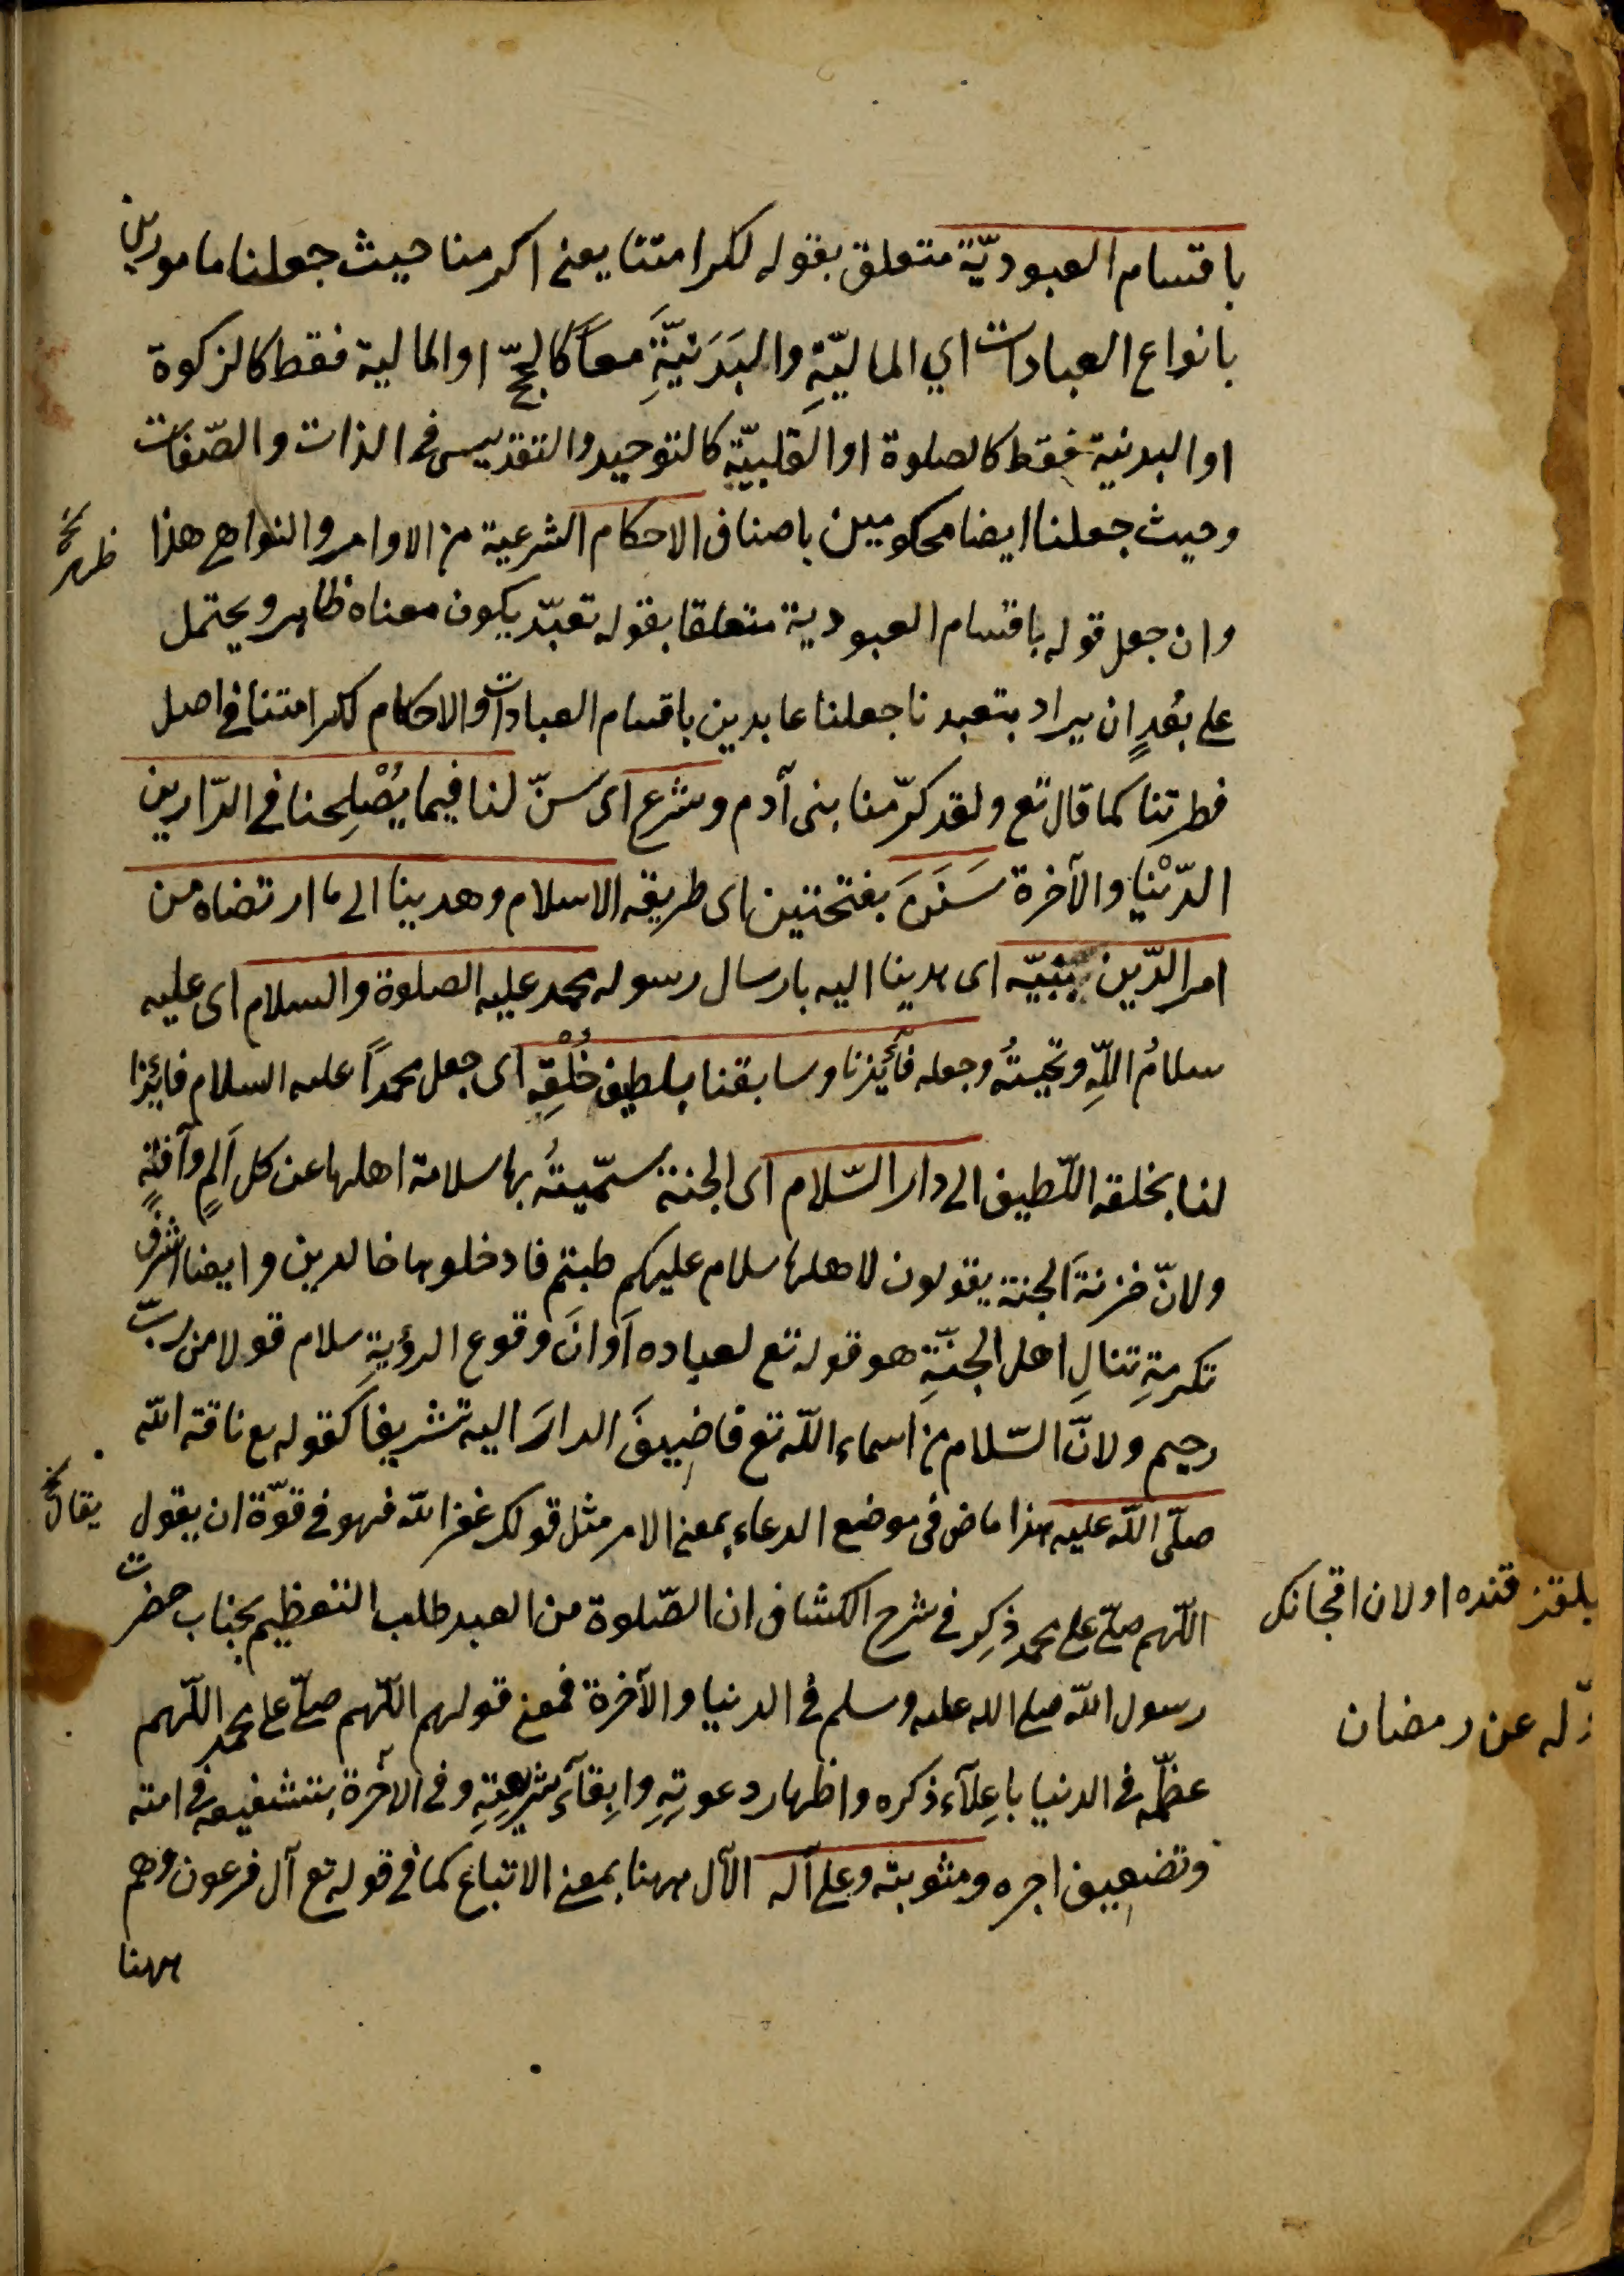 باقسام العبوديّة متعلق بقوله لكرامتنا يعنى اكرمنا حيث جعلنا مامورين
بانواع العبادات اي الماليّةِ والبَدَنيَّةِ معاً كالحجّ او المالية فقط كالزكوة
او البدنية فقط كالصلوة او القلبيّة كالتوحيد والتقديس فى الذات والصّفات
وحيث جعلنا ايضا محكومين باصناف الاحكام الشرعية من الاوامر والنواهى هذا
وان جعل قوله باقسام العبودية متعلقا بقوله تعبّد يكون معناه ظاهر ويحتمل
على بُعدٍ ان يراد بتعبدنا جعلنا عابدين باقسام العبادات والاحكام لكرامتنا فى اصل
فطرتنا كما قال تع ولقد كرّمنا بنى آدم وشرع اى سنّ لنا فيما يُصْلِحنا فى الدّارين
الدّنْيا والآخرة سَنَنَ بفتحتين اى طريقه الاسلام وهدينا الى ما ارتضاه من
امر الدّين بنبيّه اى هدينا اليه بارسال رسوله محمد عليه الصلوة والسلام اى عليه
سلامُ اللّهِ وتحيتهُ وجعله فآئزنا وسابقنا بلطيف خُلْقِه اى جعل محمداً عليه السلام فايزا
لنا بخلقه اللّطيف الى دار السّلام اى الجنة سمّيتُ بها سلامة اهلها عن كل اَلمٍ وآفةٍ
ولانّ خزنةَ الجنة يقولون لاهلها سلام عليكم طبتم فادخلوها خالدين وايضا اشرف
تكرمةِ تنالِ اهل الجنّةِ هو قوله تع لعباده اَوانَ وقوع الرؤيةِ سلام قولا من ربّ
رحيم ولانّ السّلام من اسماء اللّه تع فاضِيفَ الدارَ اليه تشريفا كقوله تع ناقة اللّه
صلّى اللّه عليه هذا ماض فى موضع الدعاء بمعنى الامر مثل قولك غفر اللّه فهو فى قوّة ان يقول
اللّهم صلّ على محمد ذكِر فى شرح الكشاف ان الصّلوة من العبد طلب التعظيم بجناب حضرت
رسول اللّه صلى الله عليه وسلم فى الدنيا والآخرة فمعنى قولهم اللّهم صلّ على محمد اللّهم
عظّمه فى الدنيا باعِلآء ذكره واظهار دعوتِهِ وابِقآء شريعتِهِ وفى الآخرة بتشفيعه فى امته
وتضعيف اجره ومثوبته وعلى آله الآل ههنا بمعنى الاتباع كما فى قوله تع آل فرعون وهم
ههنا
قنده اولان اقجانك
عن رمضان